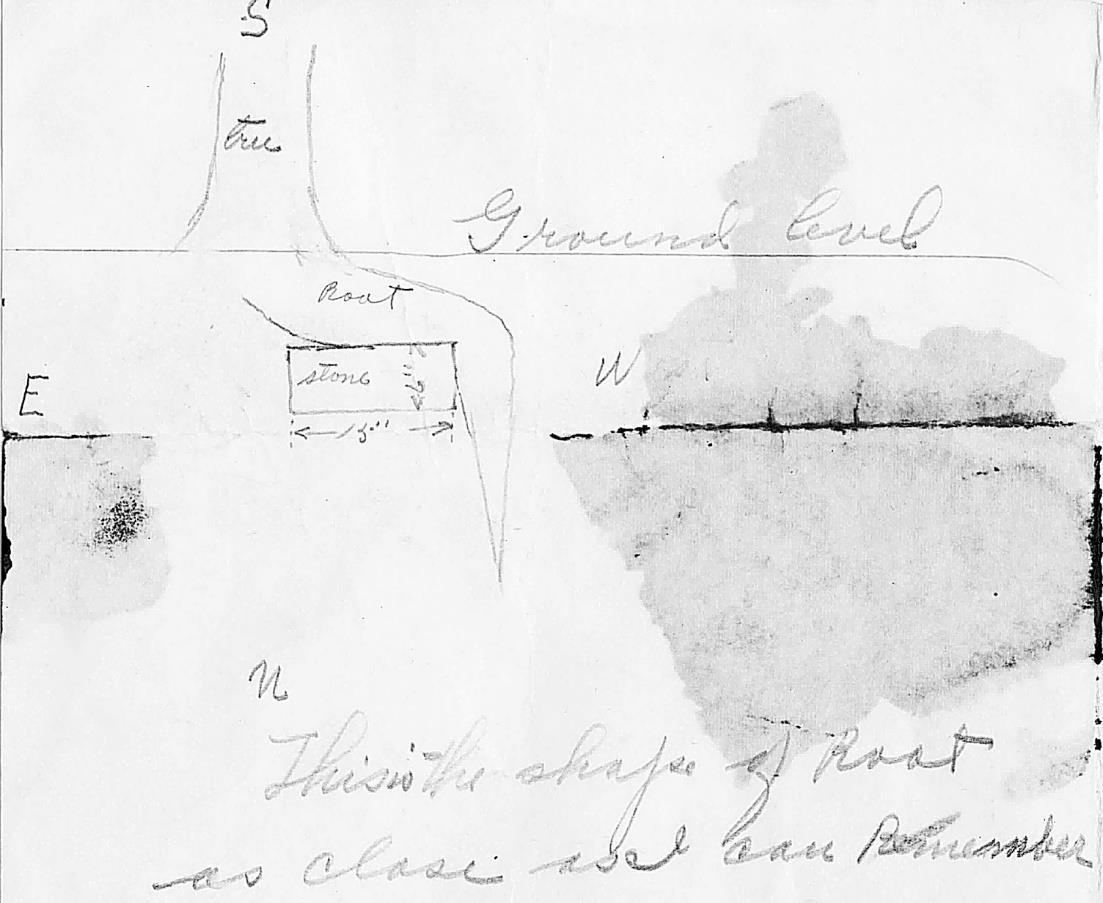 S
tree
Ground level
Root
stone
6"
W
E
15"
N
This is the shape of Root
as close as I can Remember